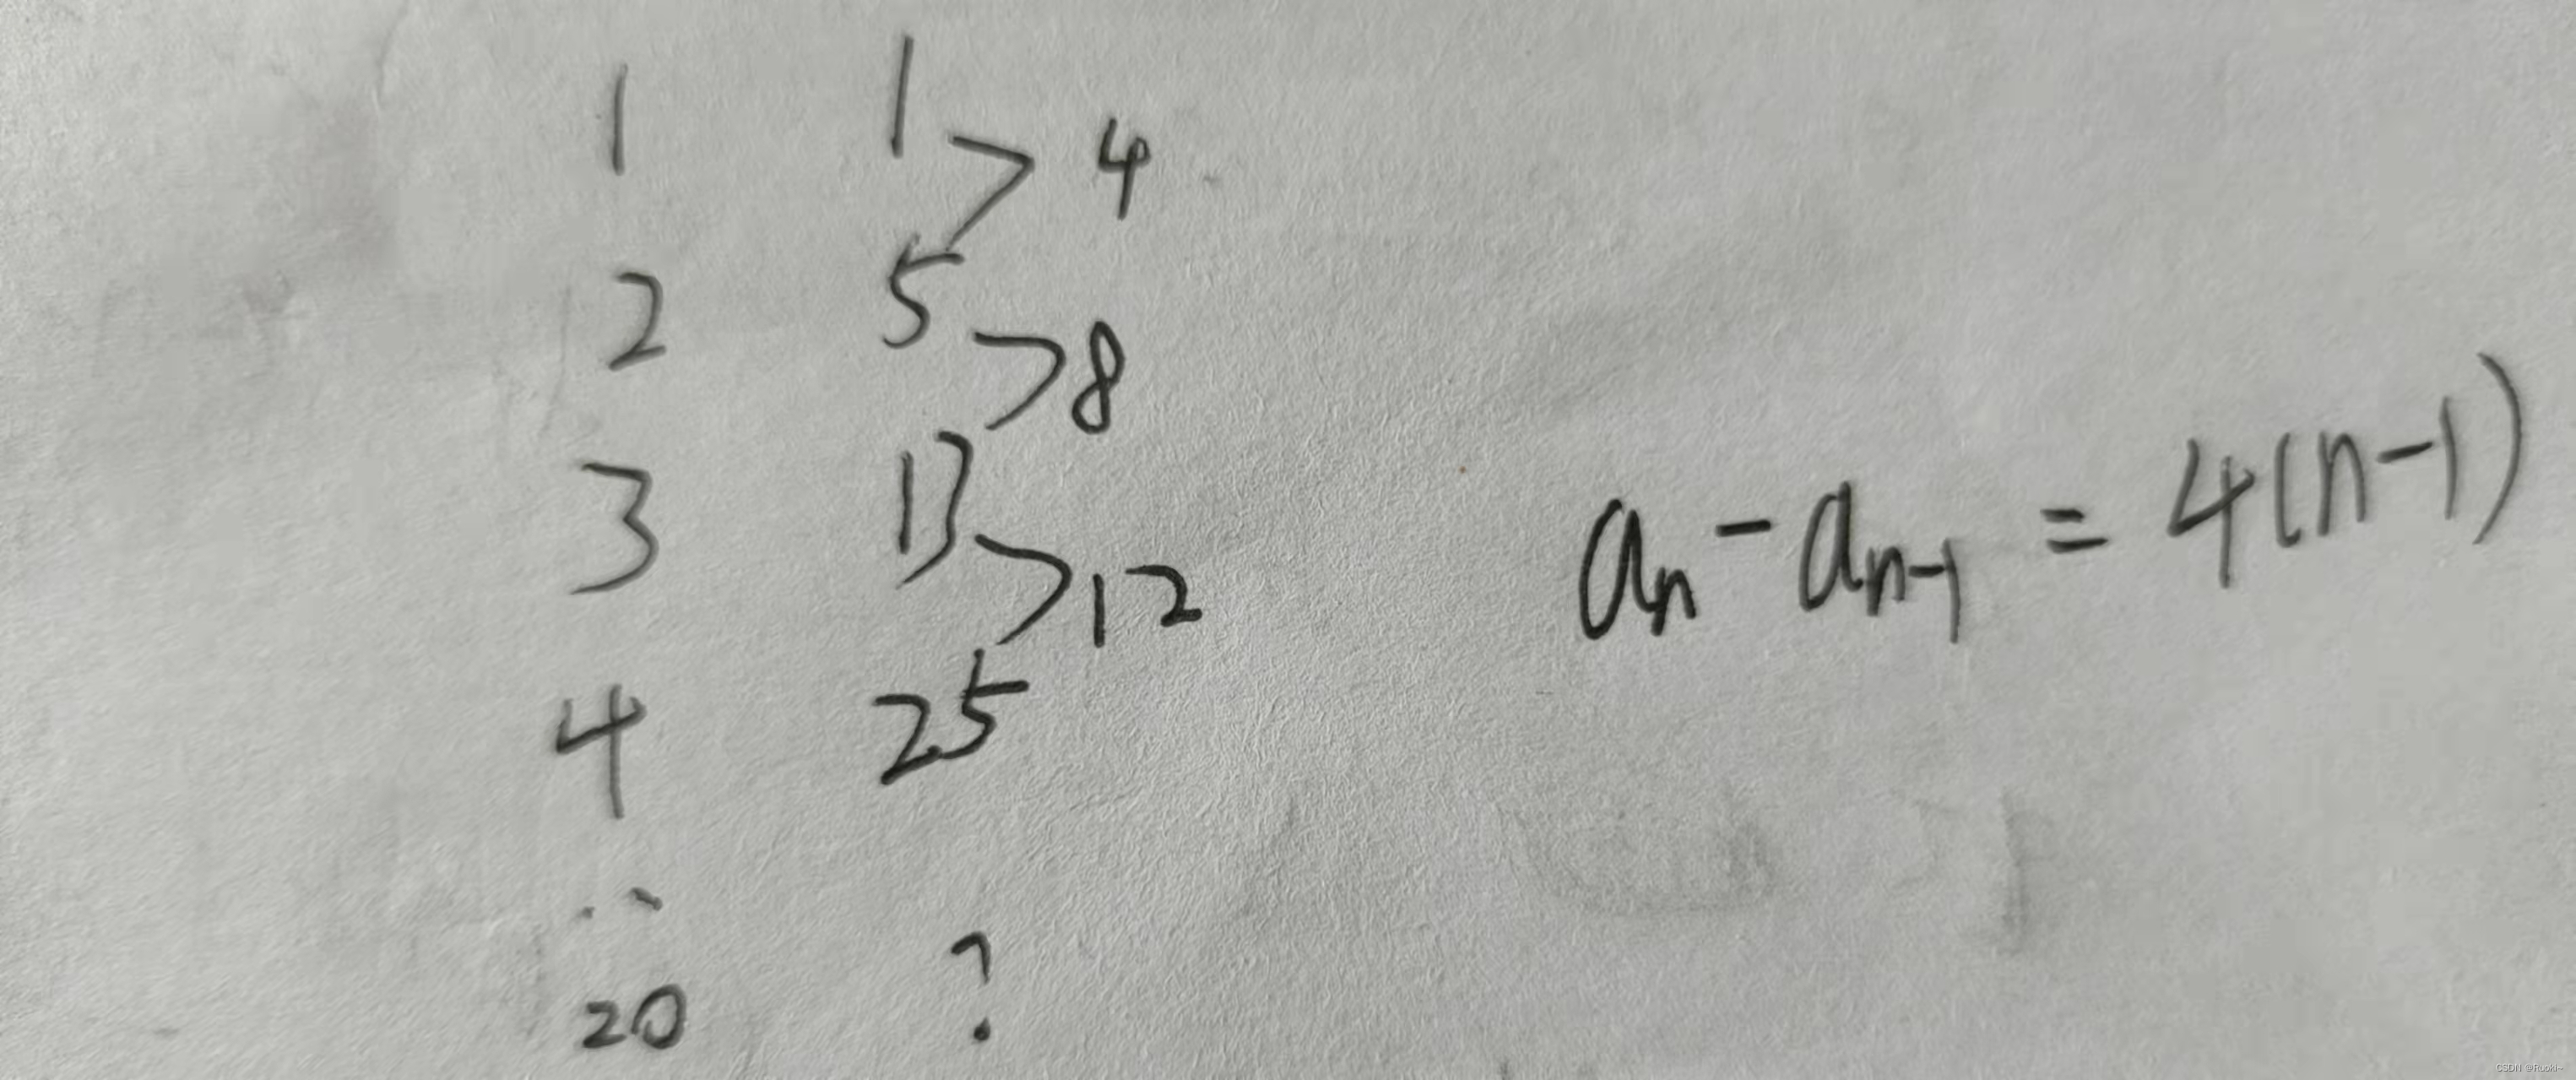 1 1 > 4
2 5 > 8
3 13 > 12
aₙ - aₙ₋₁ = 4(n-1)
4 25
..
20 ?
CSDN @Ruoki~